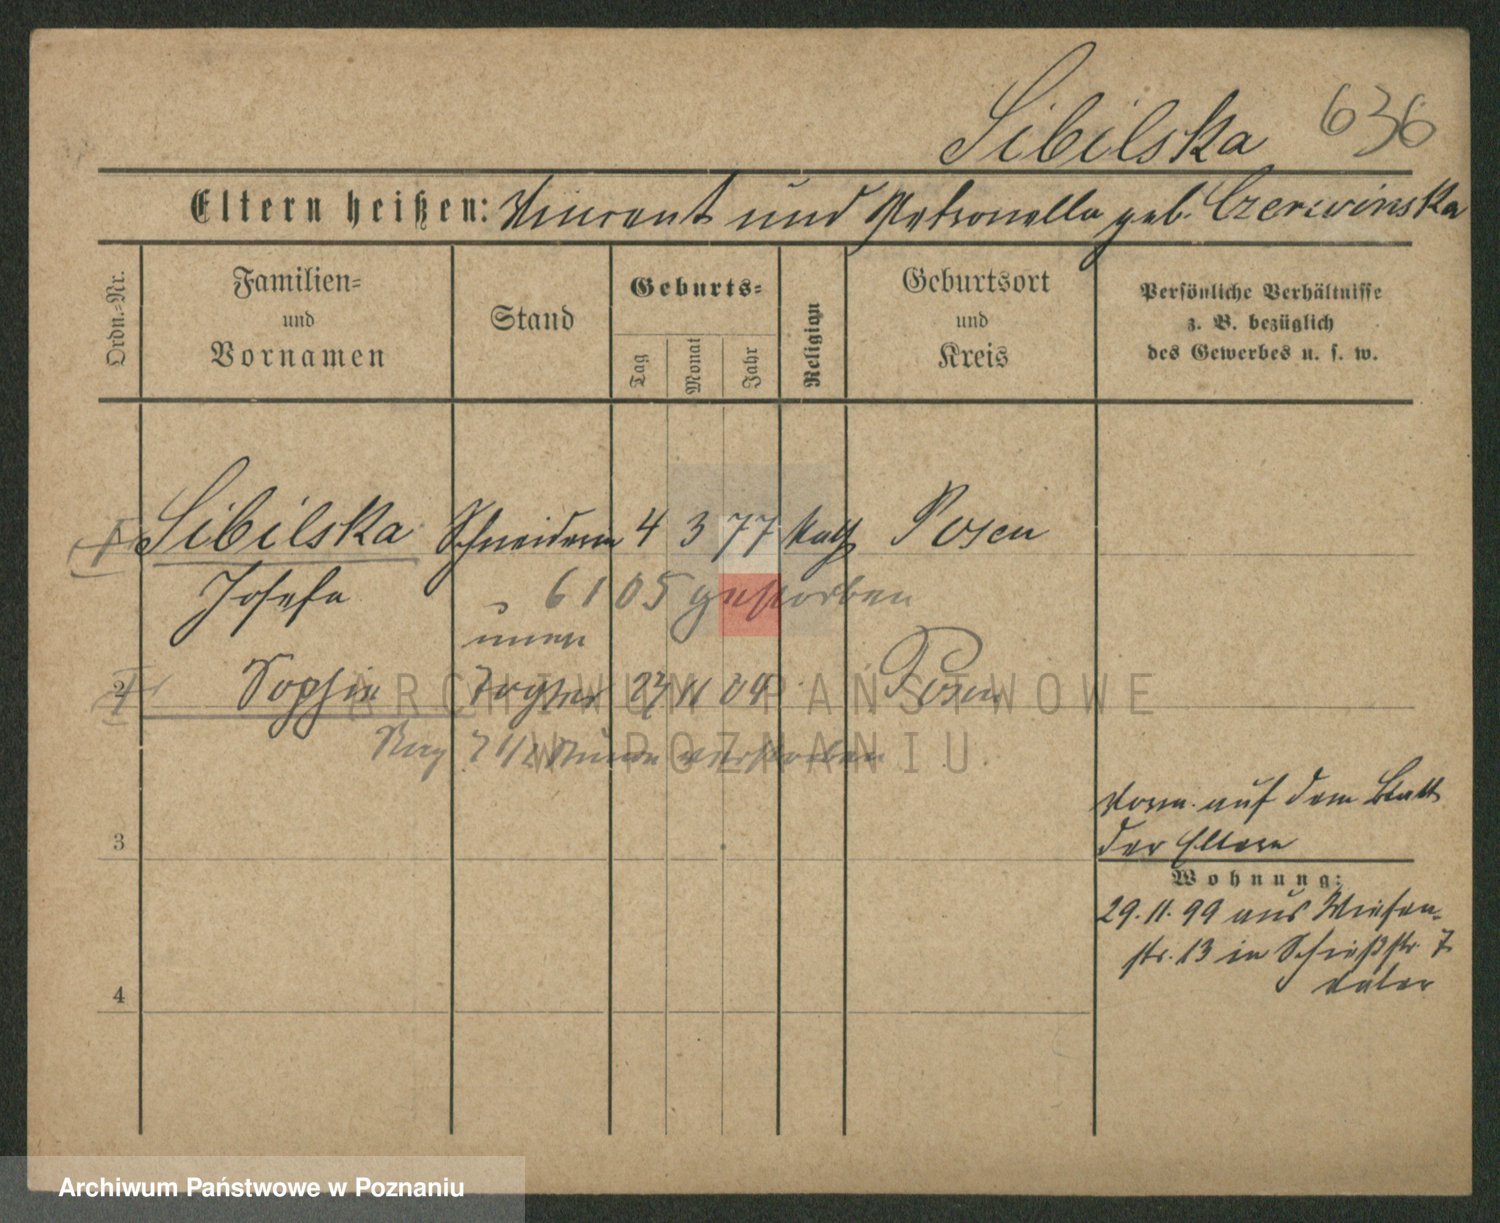 Sibilska 636
Eltern heißen: Vincent und Petronella geb. Czerwinska
Ordn.-Nr.
Familien-
und
Vornamen
Stand
Geburts-
Tag
Monat
Jahr
Religion
Geburtsort
und
Kreis
Persönliche Verhältnisse
z. B. bezüglich
des Gewerbes u. s. w.
1 Sibilska Schneiderin 4 3 77 kath Posen
Josefa 6 1 05 gestorben
2 Sophie Tochter 27 11 04 Posen
Nach 7 1/2 Stunde verstorben
3
4
Verm. auf dem Blatt
der Eltern
Wohnung:
29.11.99 aus Wiesen-
str. 13 in Schießstr. 7
Vater
ARCHIWUM PAŃSTWOWE
W POZNANIU
Archiwum Państwowe w Poznaniu